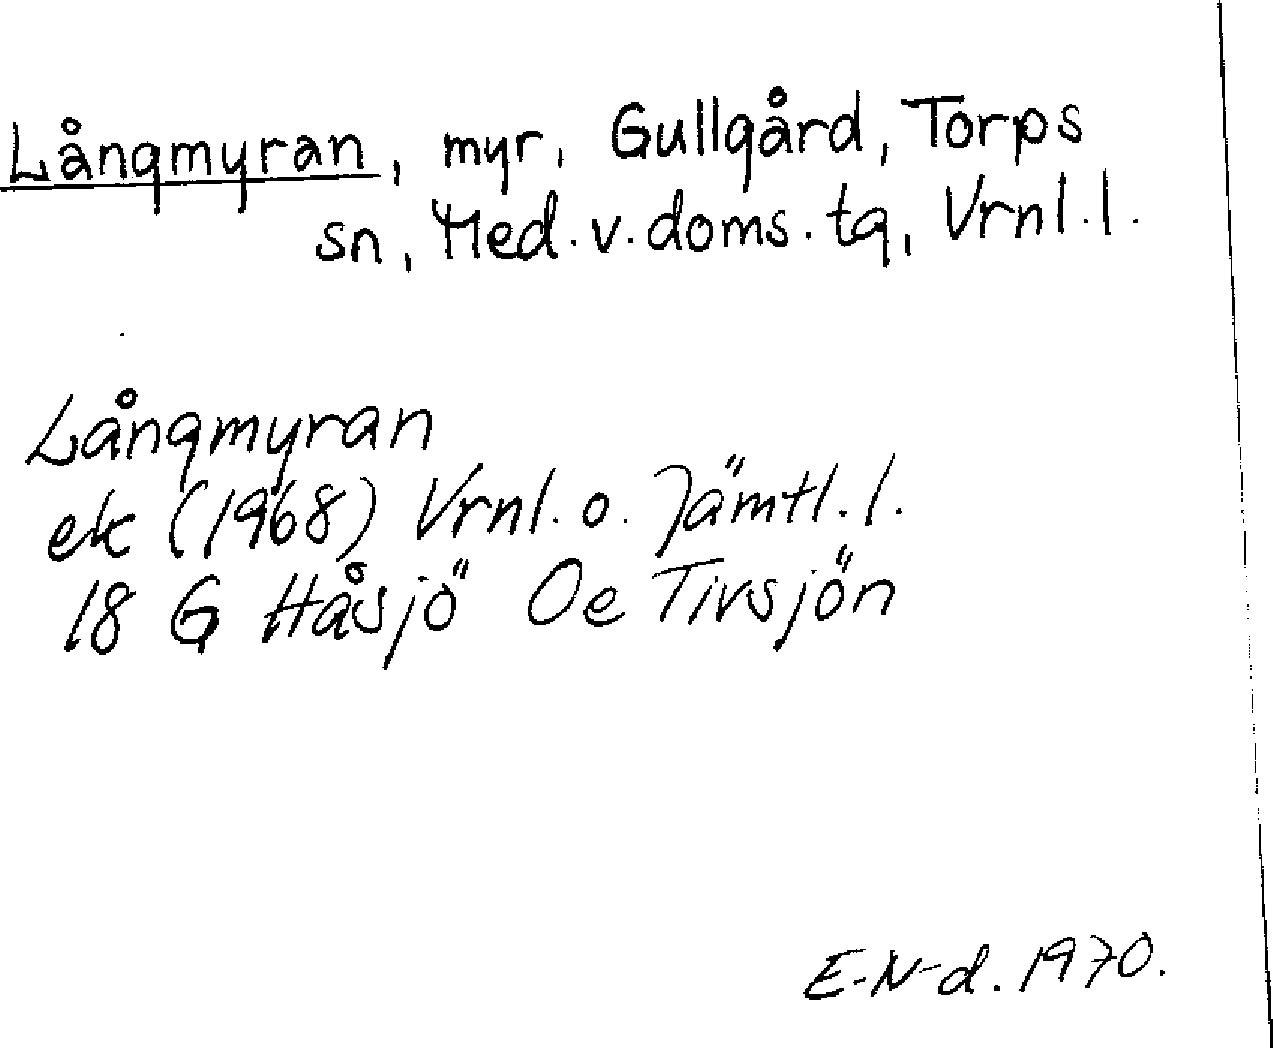 Långmyran, myr, Gullgård, Torps
sn, Med.v.doms.tg, Vrnl.l.
Långmyran
ek (1968) Vrnl. o. Jämtl. l.
18 G Håsjö Oe Tivsjön
E-N-d. 1970.